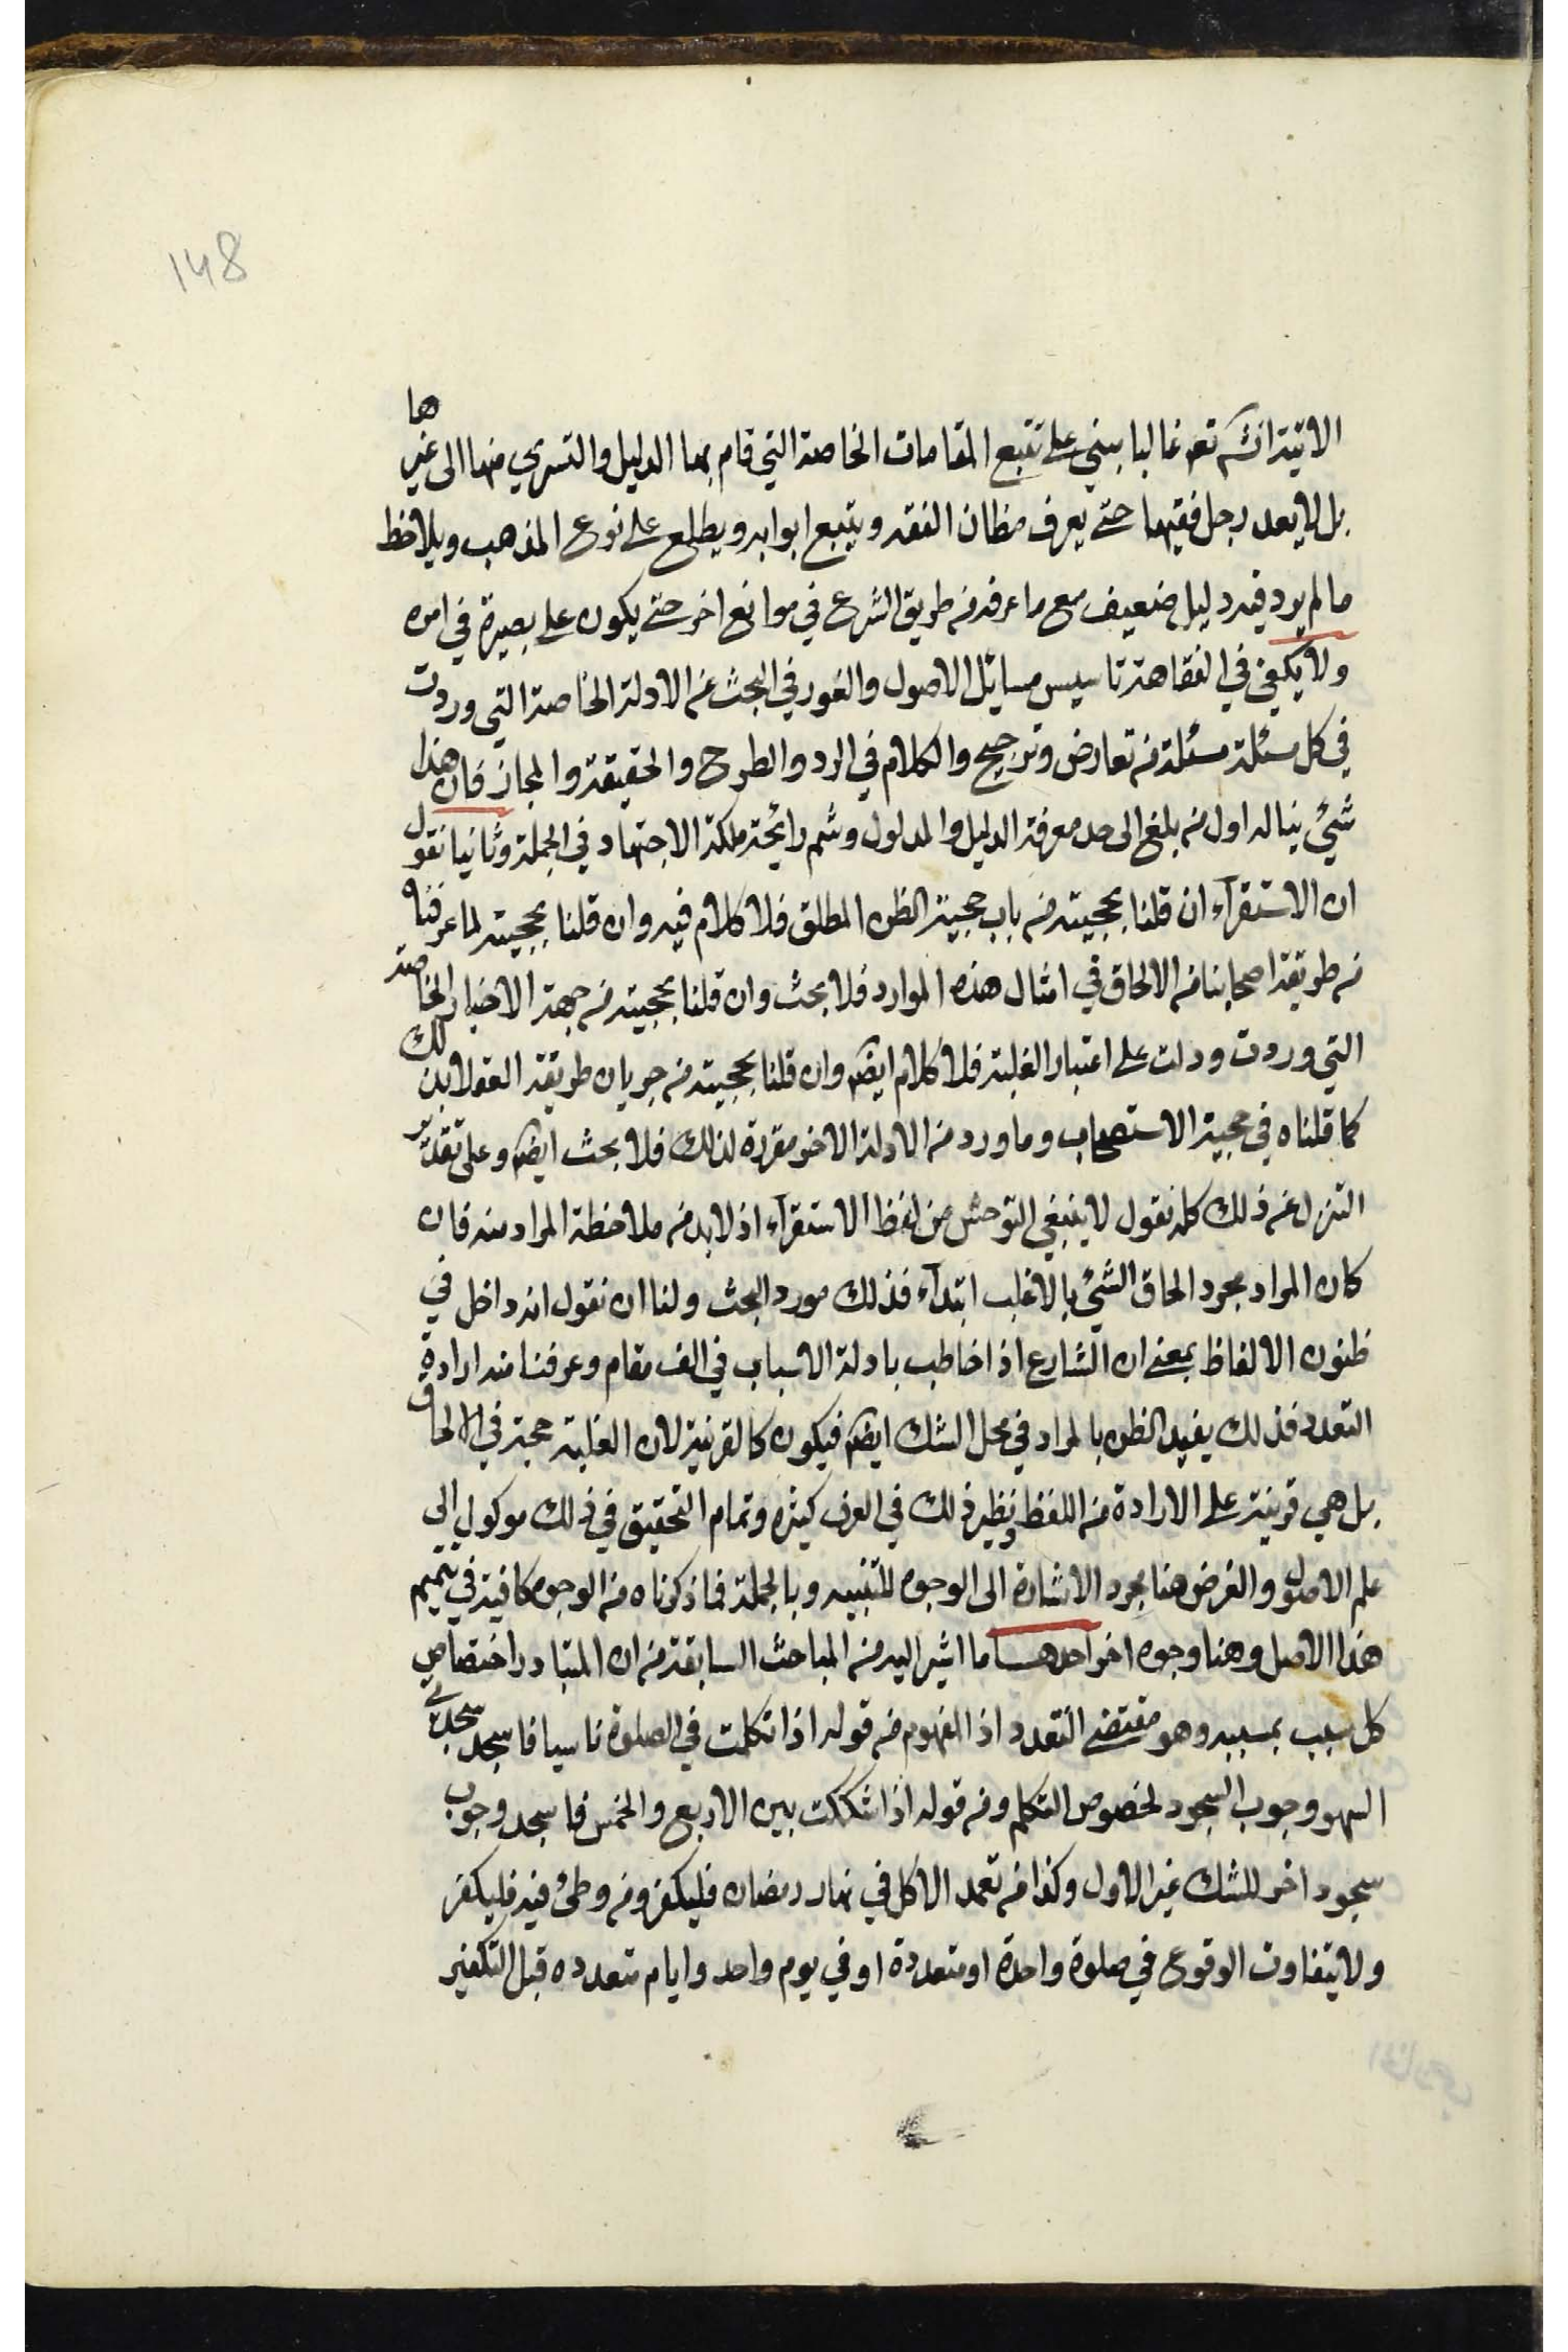 148
الاتية انش تعه غالبا يبني على تتبع المقامات الخاصة التي قام بها الدليل والتسري منها الى غيرها
بل لا يعد رجل فقيها حتى يعرف مظان الفقه ويتبع ابوابه ويطلع على نوع المذهب ويلاحظ
ما لم يرد فيه دليل ضعيف مع ما عرفه من طريق الشرع في مواضع اخر حتى يكون على بصيرة في امره
ولا يكفي في الفقاهة تاسيس مسائل الاصول والغور في البحث عن الادلة الخاصة التي وردت
في كل مسئلة مسئلة من تعارض وترجيح والكلام في الرد والطرح والحقيقة والمجاز فان هذا
شيئ يناله اول من بلغ الى حد معرفة الدليل والمدلول وشم رائحة ملكة الاجتهاد في الجملة وثانيا نقول
ان الاستقرآء ان قلنا بحجيته من باب حجية الظن المطلق فلا كلام فيه وان قلنا بحجيته لما عرفناه
من طريقة اصحابنا من الالحاق في امثال هذه الموارد فلا بحث وان قلنا بحجيته من جهة الاخبار الخاصة
التي وردت ودلت على اعتبار الغلبة فلا كلام ايضا وان قلنا بحجيته من جريان طريقة العقلا بذلك
كما قلناه في حجية الاستصحاب وما ورد من الادلة الاخر مقررة لذلك فلا بحث ايضا وعلى تقدير
التنزل عن ذلك كله نقول لا ينبغي التوحش من لفظ الاستقرآء اذ لا بد من ملاحظة المراد منه فان
كان المراد مجرد الحاق الشيئ بالاغلب ابتدآء فذلك مورد البحث ولنا ان نقول انه داخل في
ظنون الالفاظ بمعنى ان الشارع اذا خاطب بادلة الاسباب في الف مقام وعرفنا منه ارادة
التعدد فذلك يفيد الظن بالمراد في محل الشك ايضا فيكون كالقرنية لان الغلبة حجة في الالحاق
بل هي قرينة على الارادة من اللفظ ونظير ذلك في العرف كثيره وتمام التحقيق في ذلك موكول الى
علم الاصول والغرض هنا مجرد الاشارة الى الوجوه للتنبيه وبالجملة فما ذكرناه من الوجوه كافية في تتميم
هذا الاصل وهنا وجوه اخر احدها ما اشير اليه من المباحث السابقة من ان المتبادر اختصاص
كل سبب بمسببه وهو مقتضى التعدد اذ المفهوم من قوله اذا تكلمت في الصلوة ناسيا فاسجد سجدتي
السهو وجوب السجود لخصوص التكلم ومن قوله اذا شككت بين الاربع والخمس فاسجد وجوب
سجود اخر للشك غير الاول وكذا من تعمد الاكل في نهار رمضان فليكفر ومن وطئ فيه فليكفر
ولا يتفاوت الوقوع في صلوة واحدة او متعددة او في يوم واحد وايام متعدده قبل التكفير